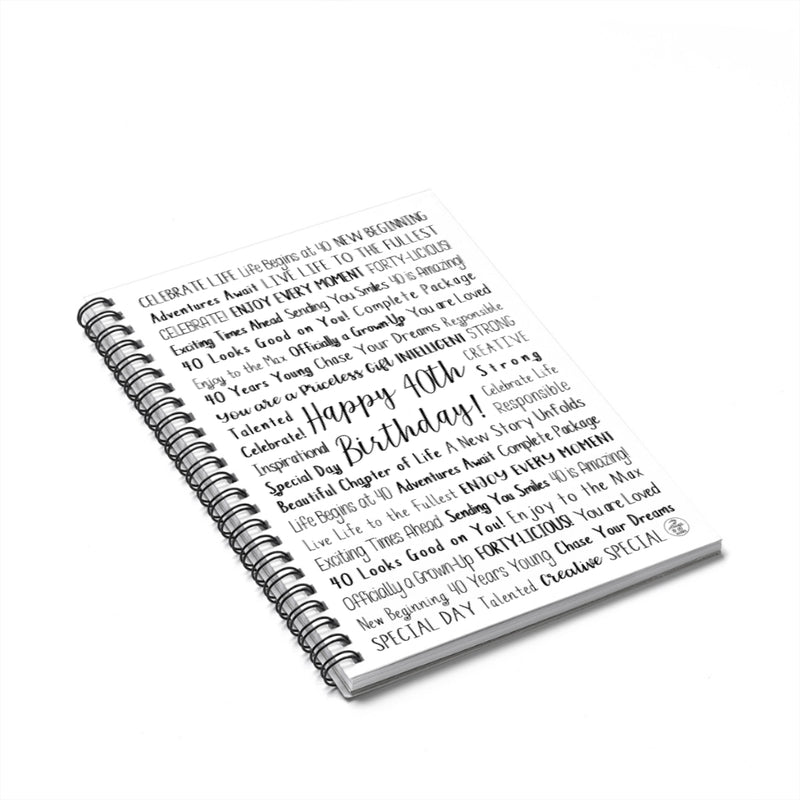 CELEBRATE LIFE Life Begins at 40 NEW BEGINNING
Adventures Await LIVE LIFE TO THE FULLEST
CELEBRATE! ENJOY EVERY MOMENT FORTY-LICIOUS!
Exciting Times Ahead Sending You Smiles 40 is Amazing!
40 Looks Good on You! Complete Package
Enjoy to the Max Officially a Grown Up You are Loved
40 Years Young Chase Your Dreams Responsible
You are a Priceless Gift INTELLIGENT STRONG
Talented Happy 40th CREATIVE
Celebrate! Strong
Inspirational Birthday! Celebrate Life
Special Day Responsible
Beautiful Chapter of Life A New Story Unfolds
Life Begins at 40 Adventures Await Complete Package
Live Life to the Fullest ENJOY EVERY MOMENT
Exciting Times Ahead Sending You Smiles 40 is Amazing!
40 Looks Good on You! Enjoy to the Max
Officially a Grown-Up FORTYLICIOUS! You are Loved
New Beginning 40 Years Young Chase Your Dreams
SPECIAL DAY Talented Creative SPECIAL